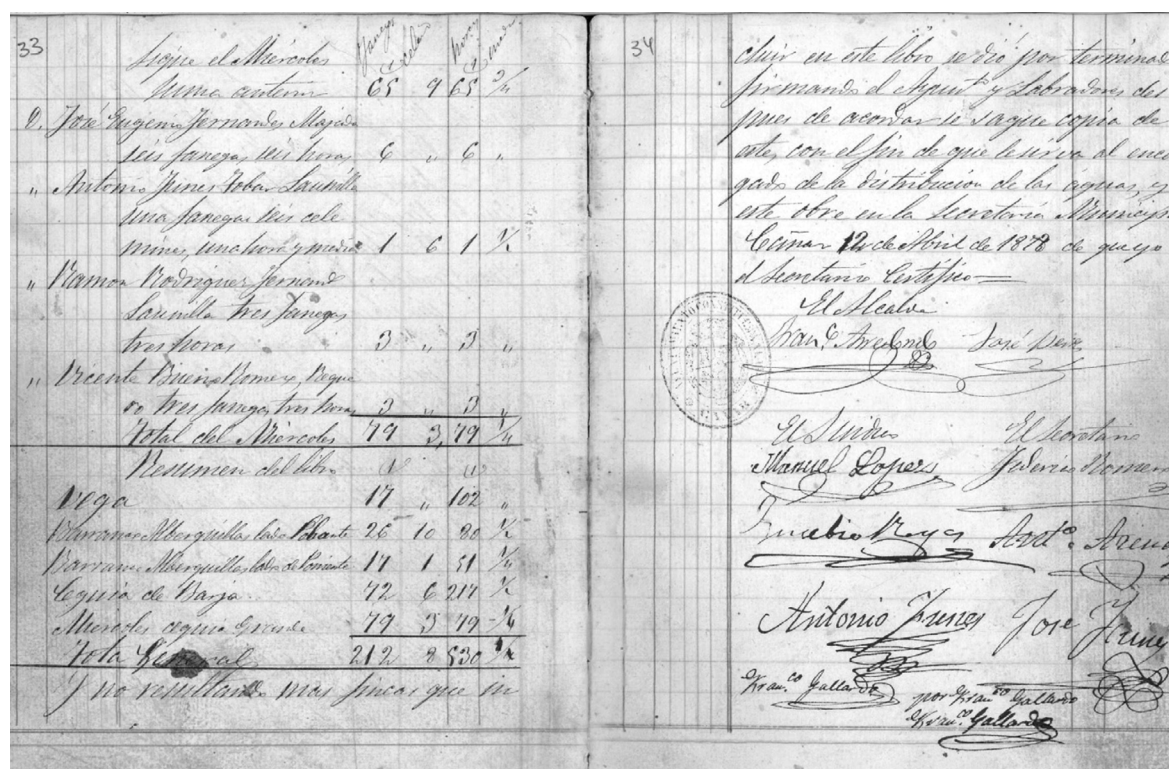 33
Sigue el Miércoles
Suma anterior 65 9 65 3/4
D. José Eugenio Fernandes Majada
seis fanegas seis horas 6 " 6 "
" Antonio Funes Tobar Saunilla
una fanega seis cele
mines, una hora y media 1 6 1 1/2
" Ramon Rodrigues Fernand
Saunilla tres fanegas
tres horas 3 " 3 "
" Vicente Bueno Romera
tres fanegas tres horas 3 " 3 "
Total del Miércoles 79 3 79 1/4
Resumen del libro
Vega 17 " 102 "
Barranco Alberquillas lado 26 10 80 1/2
Barranco Alberquillas lado de Poniente 17 1 51 1/4
Cequia de Barja 72 6 217 1/2
Miercoles cequia Grande 79 3 79 1/4
Total General 212 8 530
Y no resultando mas fincas que in
34
cluir en este libro se dió por terminad
firmando el Ayunt.º y Labradores des
pues de acordar se saque copia de
este, con el fin de que le sirva al enca
gado de la distribucion de las aguas, y
este obre en la Secretaria Municip
Cáñar 12 de Abril de 1878 de que yo
el Secretario Certifico=
El Alcalde
Fran.co Arredondo José Peres
El Sindico El Secretario
Manuel Lopez Federico Romer
Eusebio Reyes Ant.º
Antonio Funes Jose Funes
Fran.co Gallardo por Fran.co Gallardo
Fran.co Gallardo